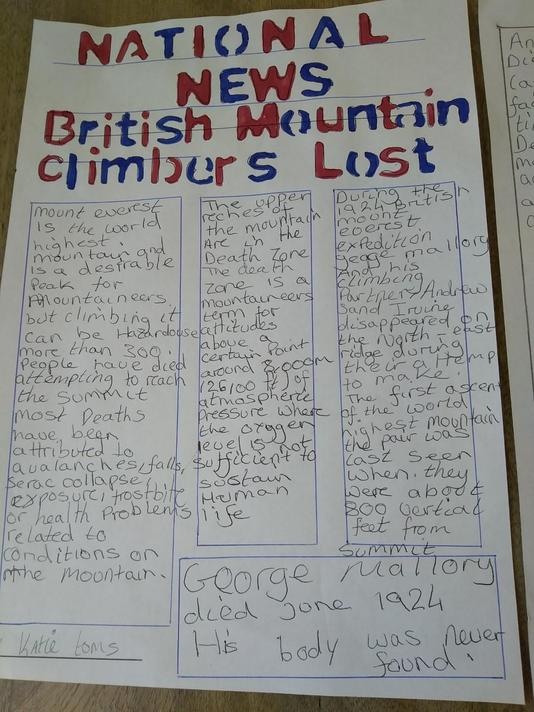 NATIONAL
NEWS
British Mountain
climbers Lost
mount everest
is the world
highest.
mountain and
is a desirable
Peak for
Mountaineers
but climbing it
can be Hazardouse
more than 300.
People have died
attempting to reach
the Summit
most Deaths
have been
attributed to
avalanches, falls,
serac collapse,
exposure, frostbite
or health Problems
related to
conditions on
the mountain.
Katie toms
The upper
reches of
the mountain
Are in the
Death Zone
The death
zone is a
mountaineers
term for
altitudes
above a
certain Point
around 8,000m
(26,100 ft) of
atmospheric
Pressure where
the oxygen
level is not
sufficient to
sustain
Human
life
During the
1924 British
mount
everest
expedition
mallory
And his
climbing
Partner, Andrew
Sand Irvine
disappeared on
the North-east
ridge during
their attemp
to make.
The first ascent
of the world
highest mountain
the pair was
Last seen
when. they
were about
800 vertical
feet from
Summit
George Mallory
died june 1924
His body was never
found.